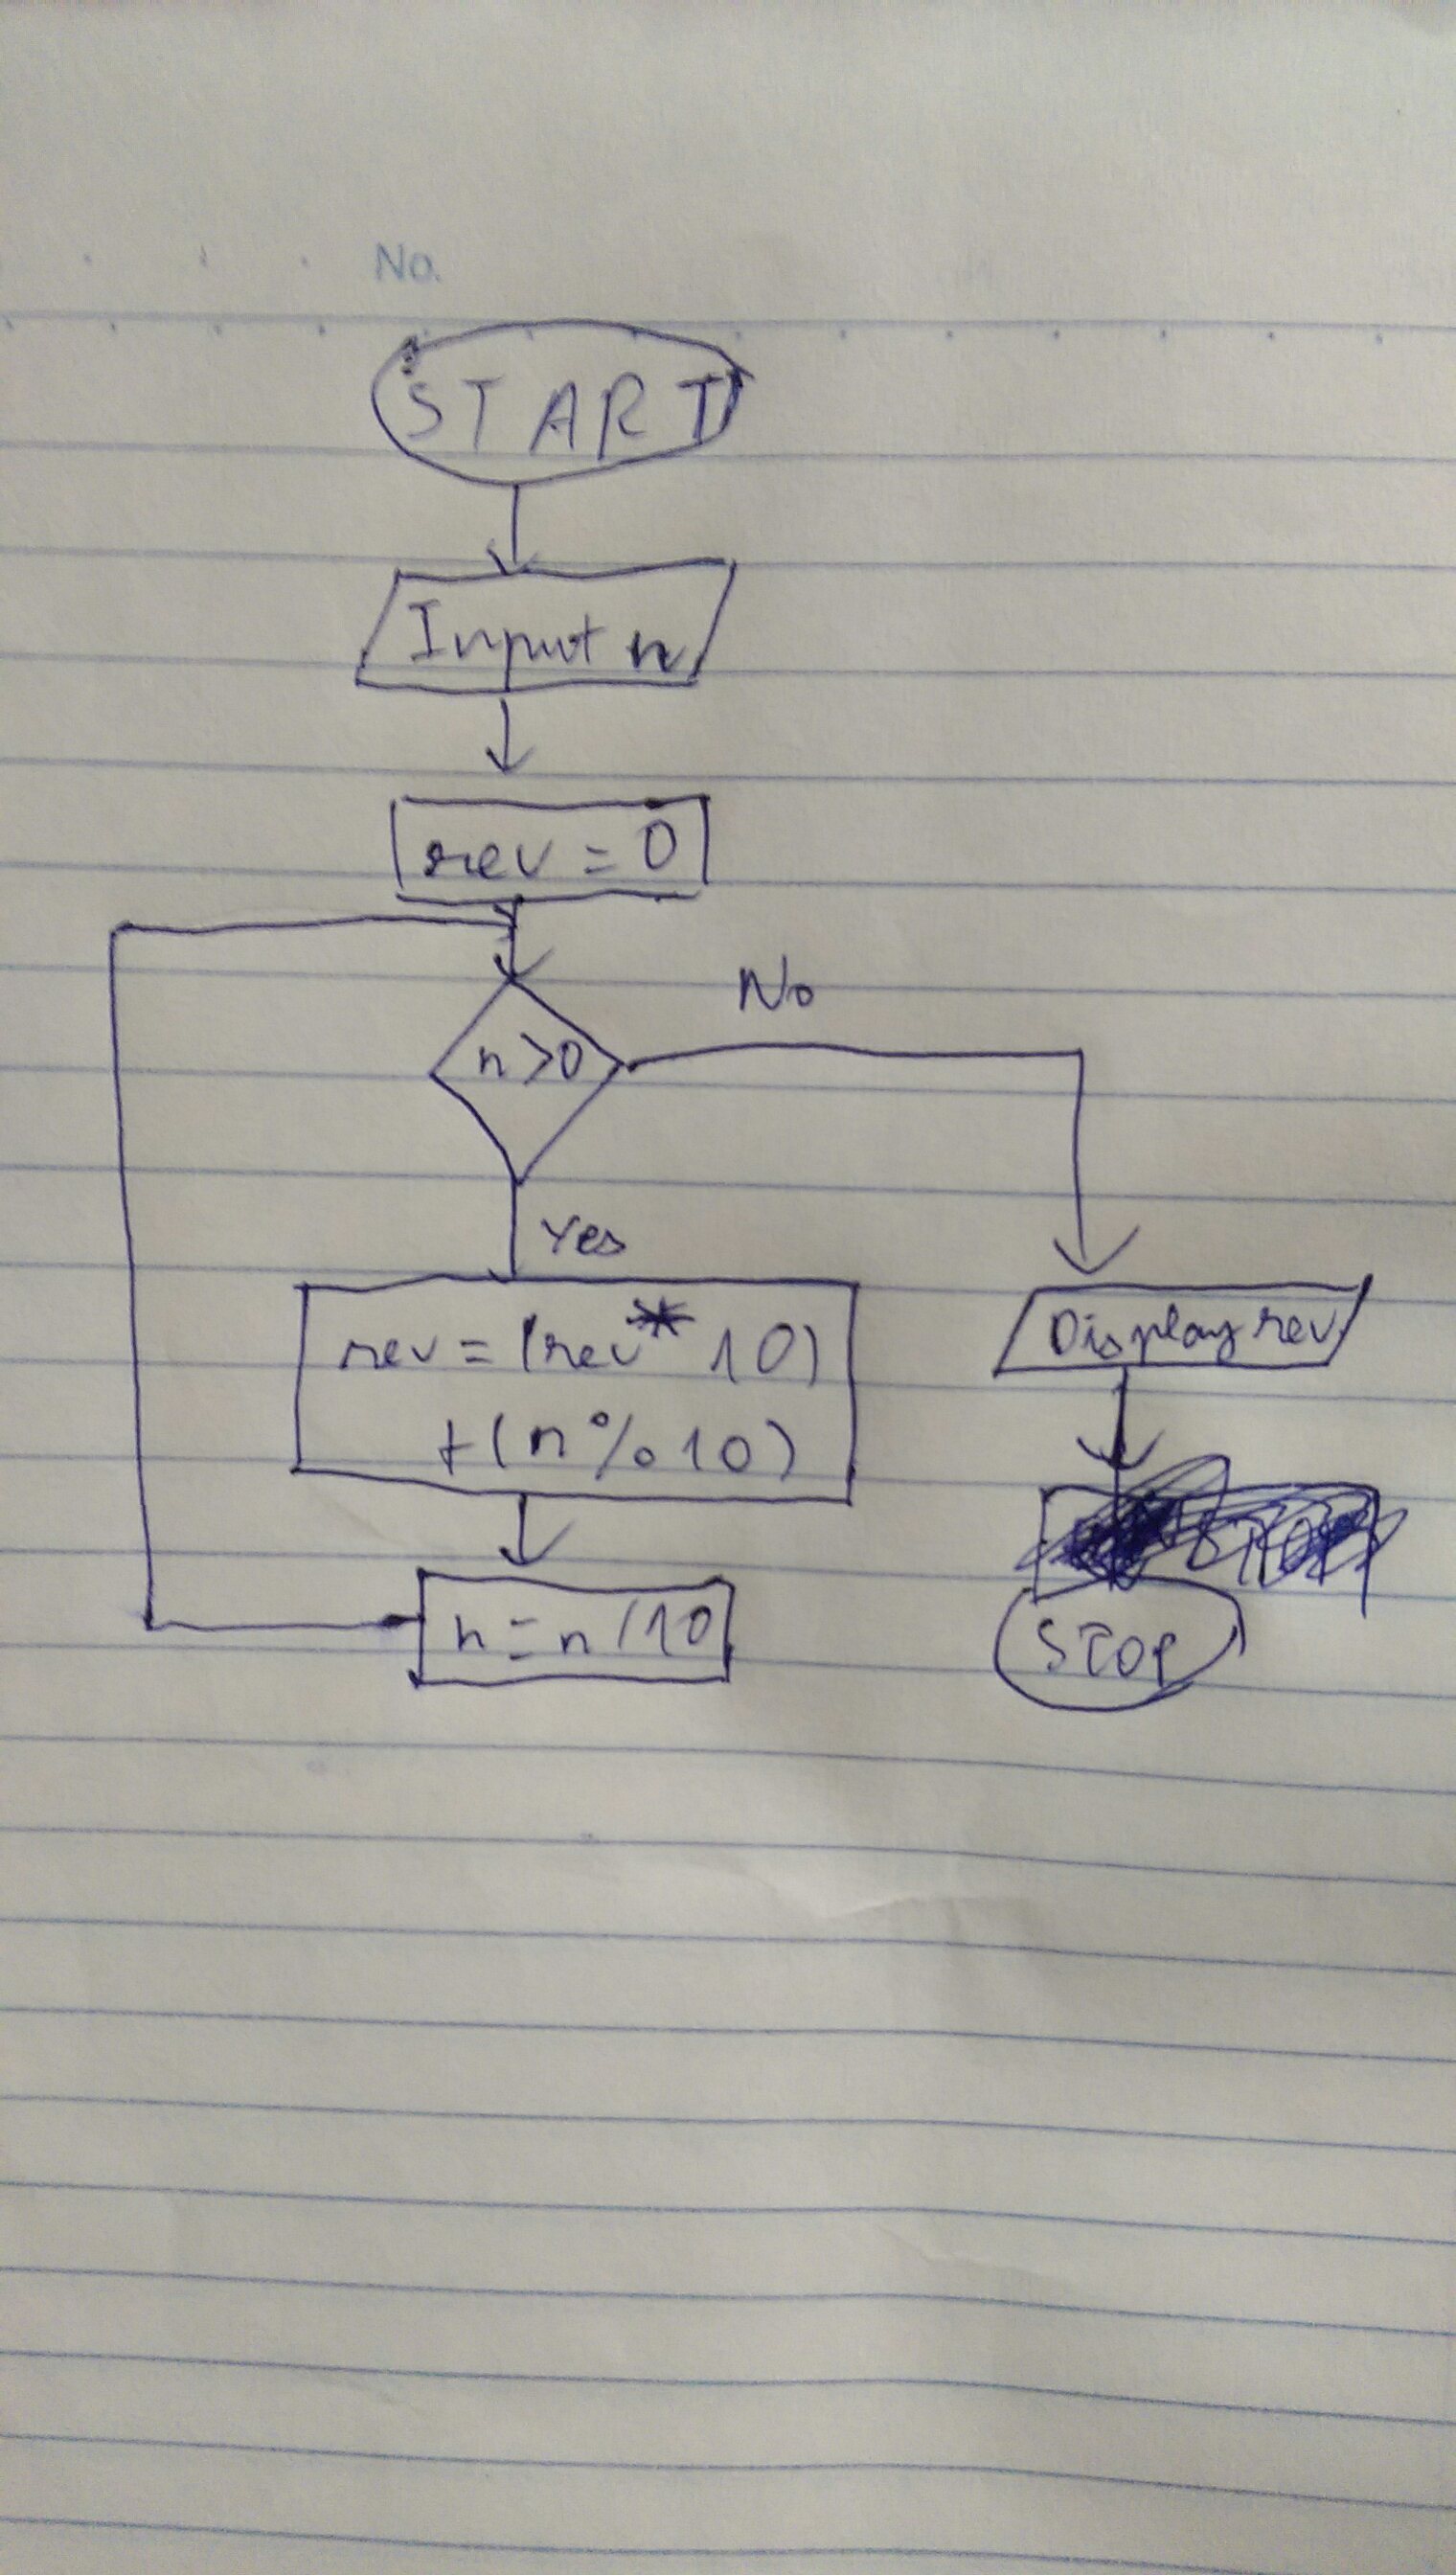 No.
START
Input n
rev = 0
n>0
No
Yes
rev = (rev * 10)
+ (n % 10)
Display rev
n = n / 10
STOP